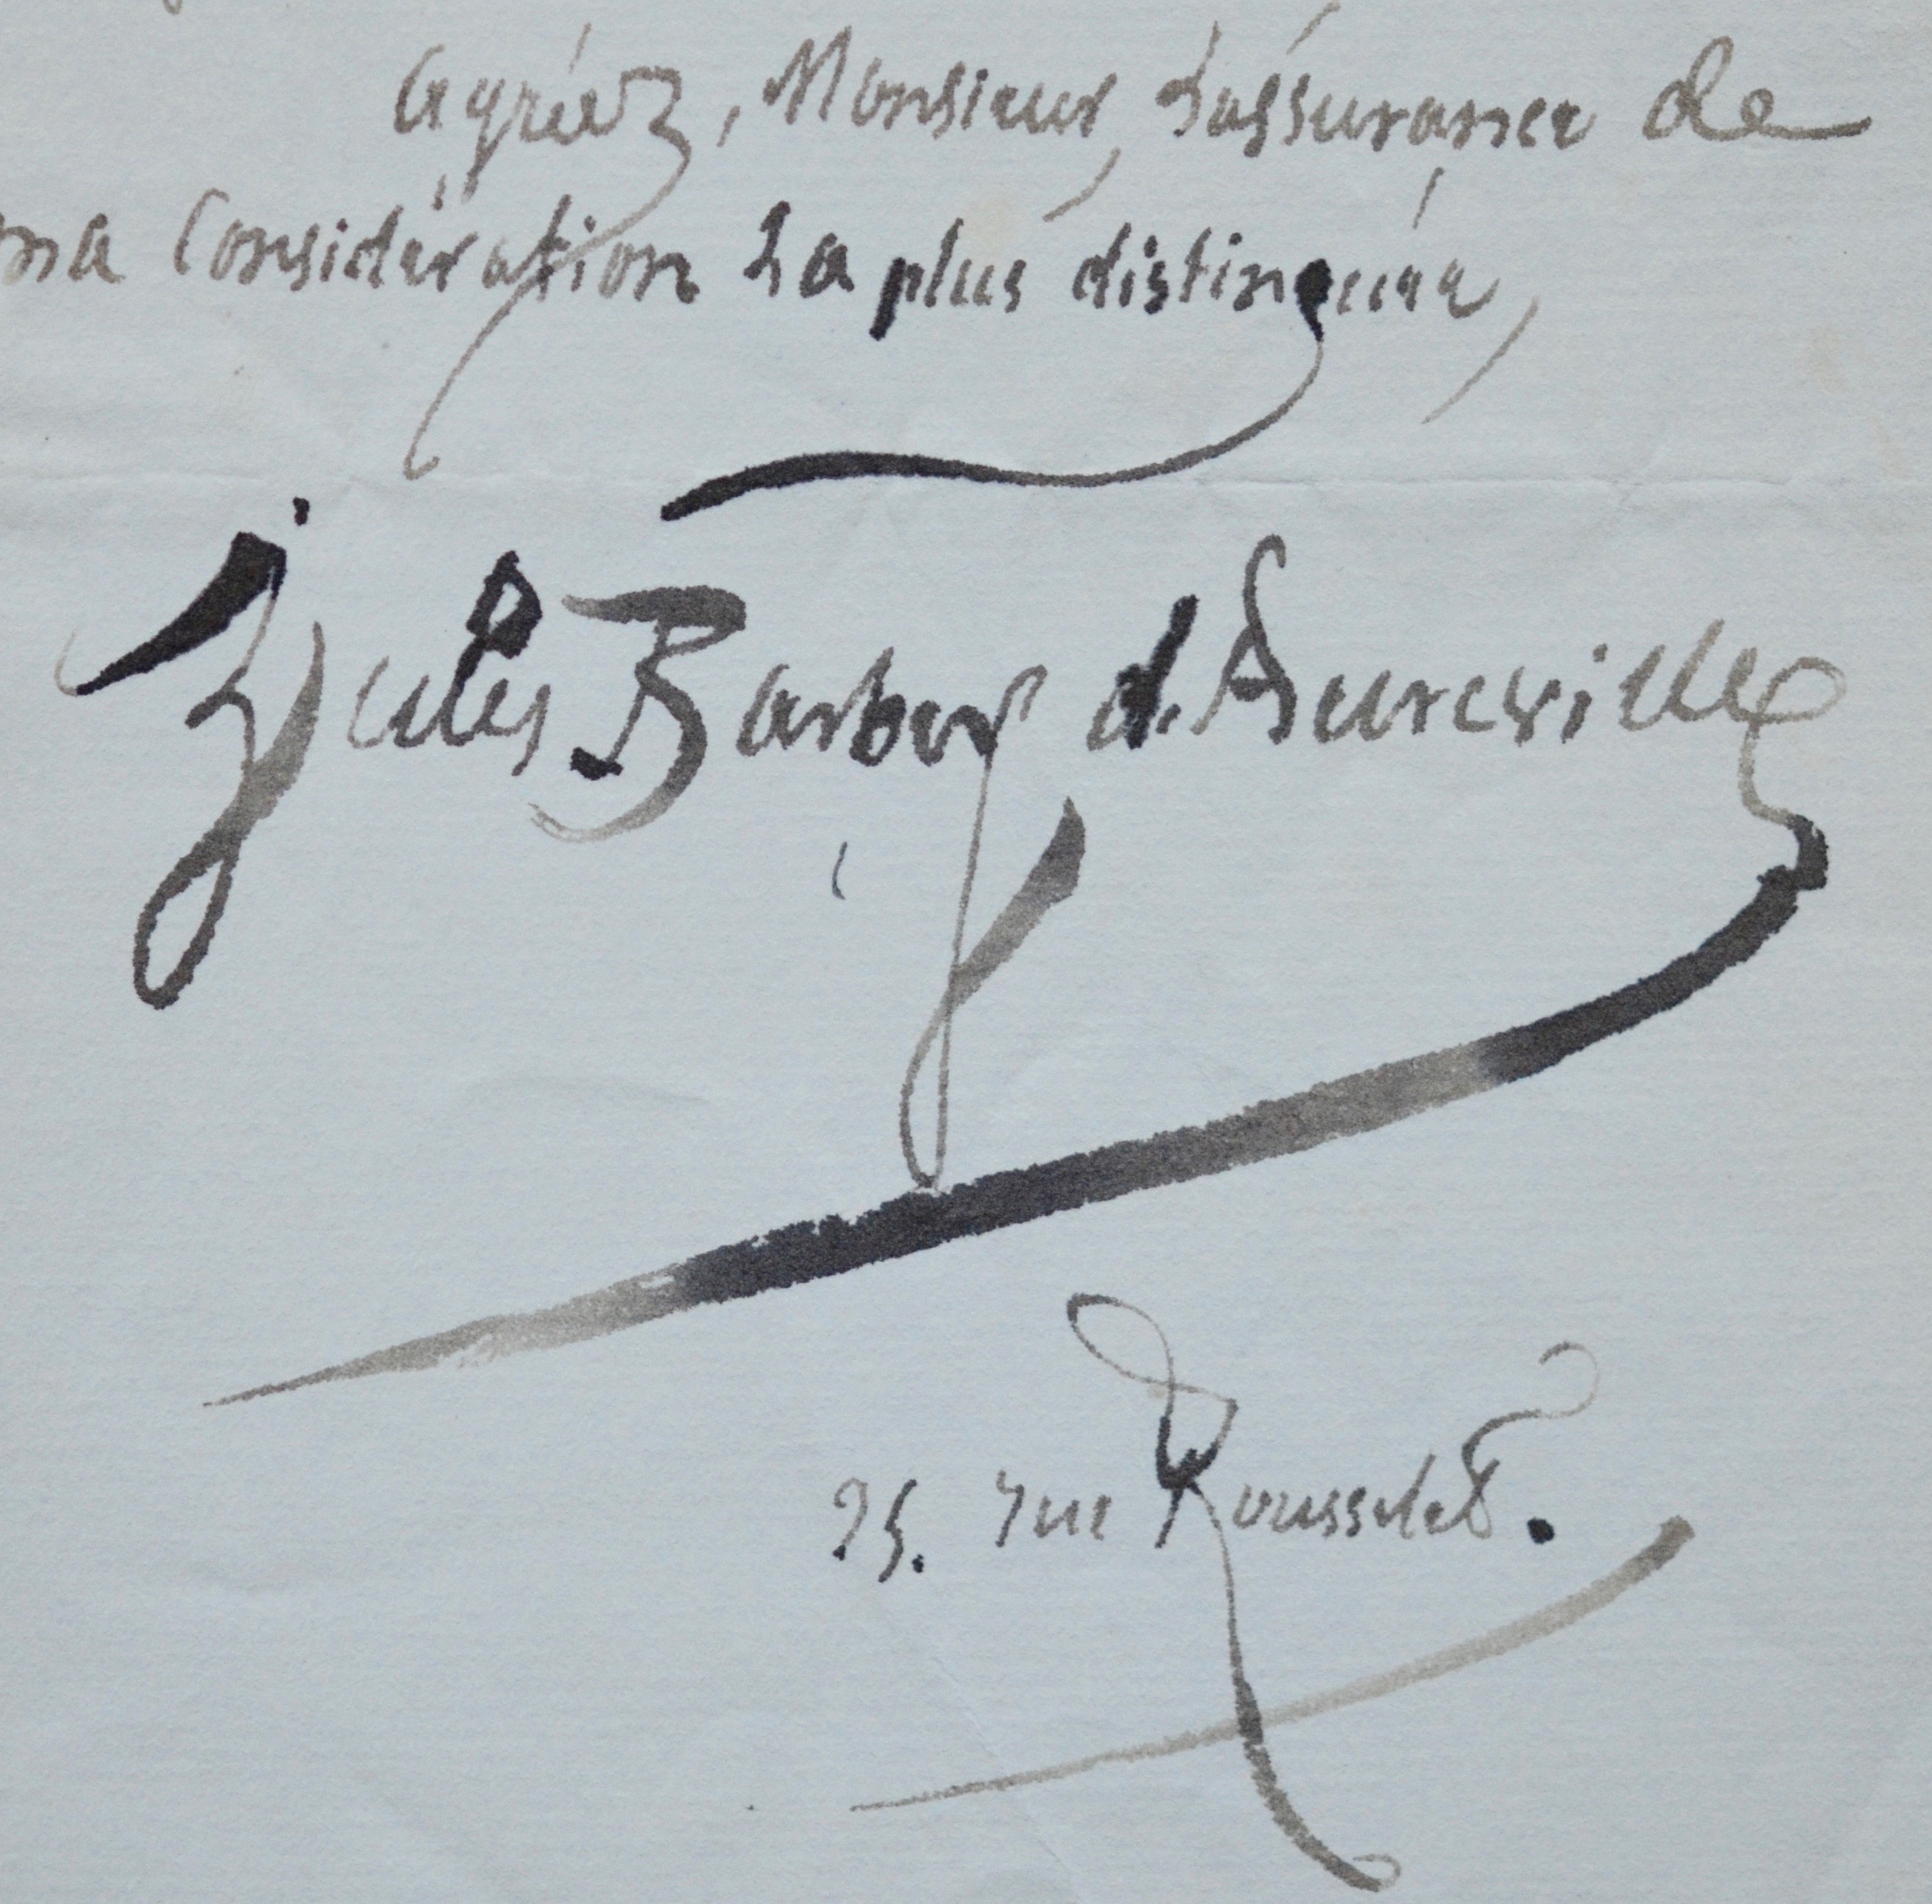 Agréez, Monsieur, l'assurance de
ma Considération La plus distinguée,
Jules Barbey d'Aurevilly
25. rue Rousselet.